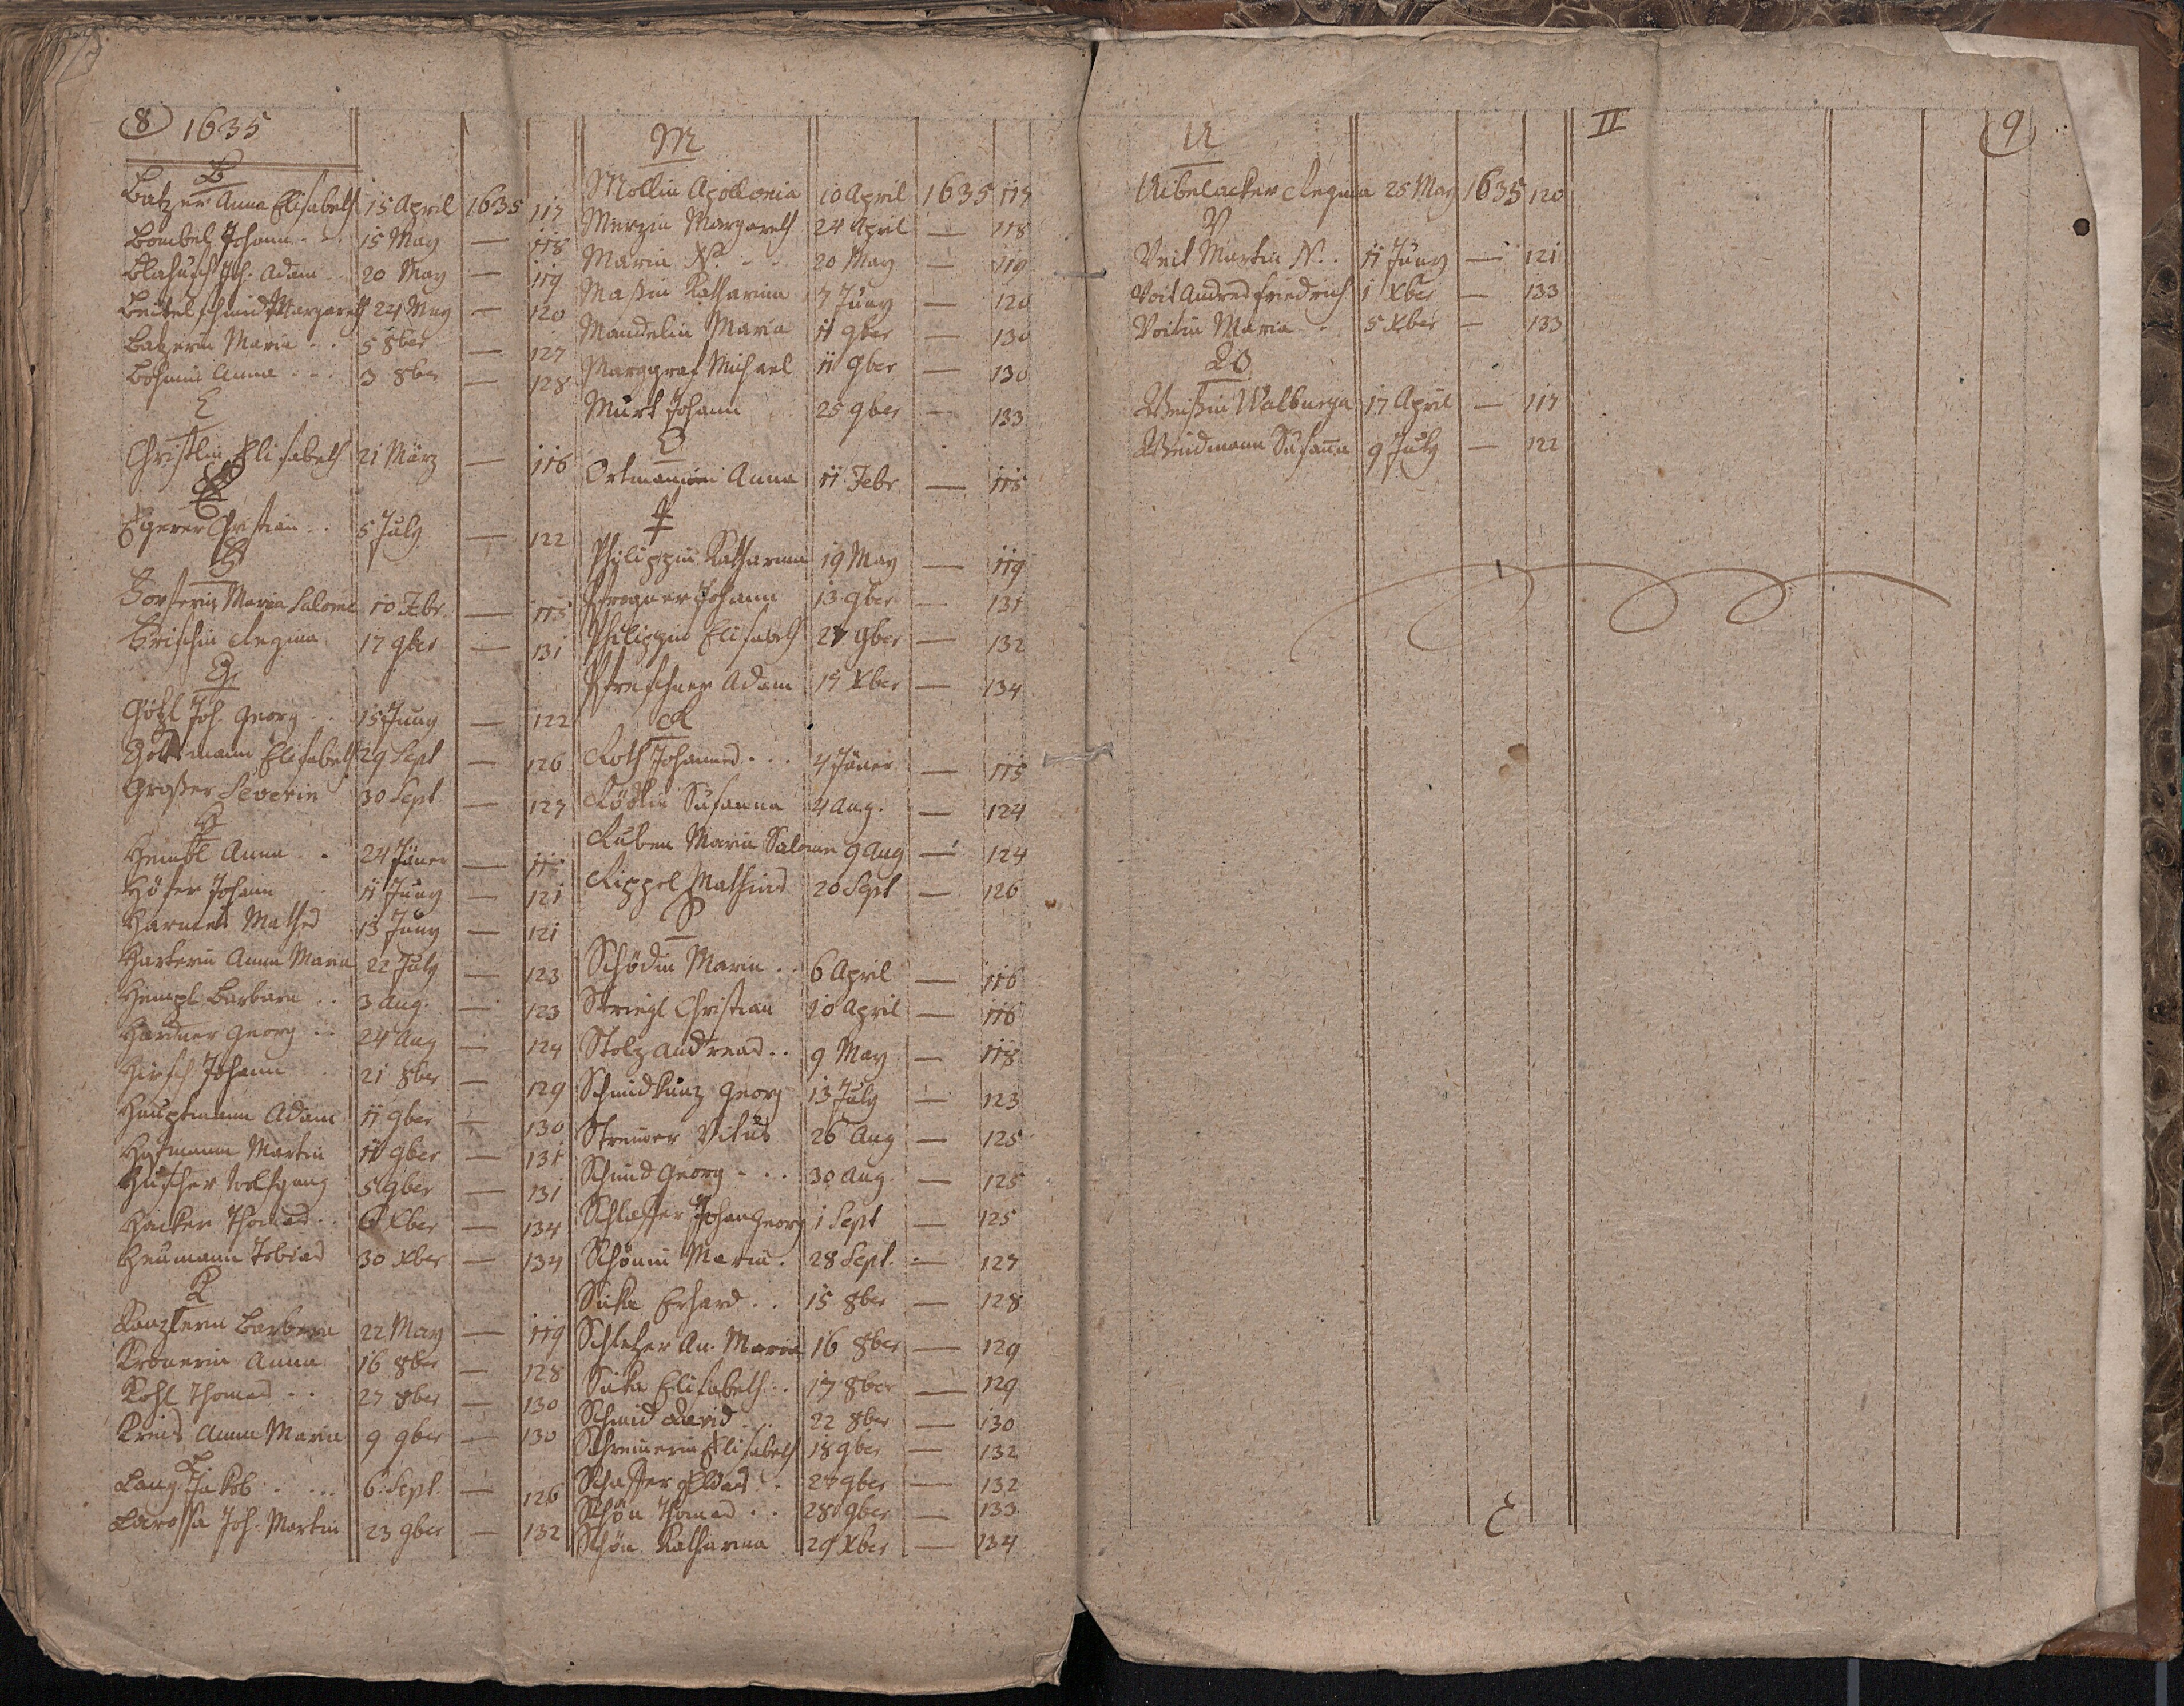 8 1635
B
Batzer Anna Elisabeth 15 April 1635 117
Bombel Johann 15 May — 118
Blahusch Joh. Adam 20 May — 119
Beitelschmid Margareth 24 May — 120
Batzerin Maria 5 8ber — 127
Böhmin Anna 3 8ber — 128
C
Christlin Elisabeth 21 März — 116
E
Egerer Christian 5 July — 122
F
Forsterin Maria Salome 10 Febr. — 115
Frischin Regina 17 9ber — 131
G
Götzl Joh. Georg 15 Juny — 122
Gottmann Elisabeth 29 Sept — 126
Großer Severin 30 Sept — 127
H
Heindl Anna 24 Jäner —
Höfer Johann 11 Juny — 121
Harner Mathes 13 Juny — 121
Harterin Anna Maria 22 July — 123
Hempl Barbara 3 Aug. — 123
Hardner Georg 24 Aug — 124
Hirsch Johann 21 8ber — 129
Hauptmann Adam 11 9ber — 130
Hofmann Martin 11 9ber — 131
Huscher Wolfgang 5 9ber — 131
Hacker Thomas 6 Xber — 134
Heumann Tobias 30 Xber — 134
K
Kanzlerin Barbara 22 May — 119
Kronerin Anna 16 8ber — 128
Kohl Thomas 27 8ber — 130
Kreis Anna Maria 9 9ber — 130
L
Lang Jakob 6 Sept. — 126
Larossa Joh. Martin 23 9ber — 132
M
Mollin Apollonia 10 April 1635 117
Merzin Margareth 24 April — 118
Maria N. 20 May — 119
Maßin Katharina 7 Juny — 120
Mandelin Maria 11 9ber — 130
Marggraf Michael 11 9ber — 130
Murk Johann 25 9ber — 133
O
Ortmannin Anna 11 Febr — 115
P
Philippin Katharina 19 May — 119
Pfregner Johann 13 9ber — 131
Philippin Elisabeth 27 9ber — 132
Pfreschner Adam 15 Xber — 134
R
Roth Johannes 4 Jäner — 115
Rödlin Susanna 4 Aug. — 124
Ruben Maria Salome 9 Aug — 124
Rippel Mathias 20 Sept — 126
S
Schödin Maria 6 April — 116
Striegl Christian 10 April — 116
Stolz Andreas 9 May — 118
Schmidkunz Georg 13 July — 123
Vitus 26 Aug — 125
Schmid Georg 30 Aug. — 125
Schlosser Johan Georg 1 Sept — 125
Schönin Maria 28 Sept. — 127
Sicka Erhard 15 8ber — 128
Schletzer An. Maria 16 8ber — 129
Sicka Elisabeth 17 8ber — 129
Schmid David 22 8ber — 130
Schreinerin Elisabeth 18 9ber — 132
Schaffer 24 9ber — 132
Schön Thomas 28 9ber — 133
Schön Katharina 29 Xber — 134
U
Uibelacker Regina 25 May 1635 120
V
Veit Martin N. 11 Juny — 121
Voit Andreas Friedrich 1 Xber — 133
Voitin Maria 5 Xber — 133
W
Weißin Walburga 17 April — 117
Weidmann Susana 9 July — 122
II
9